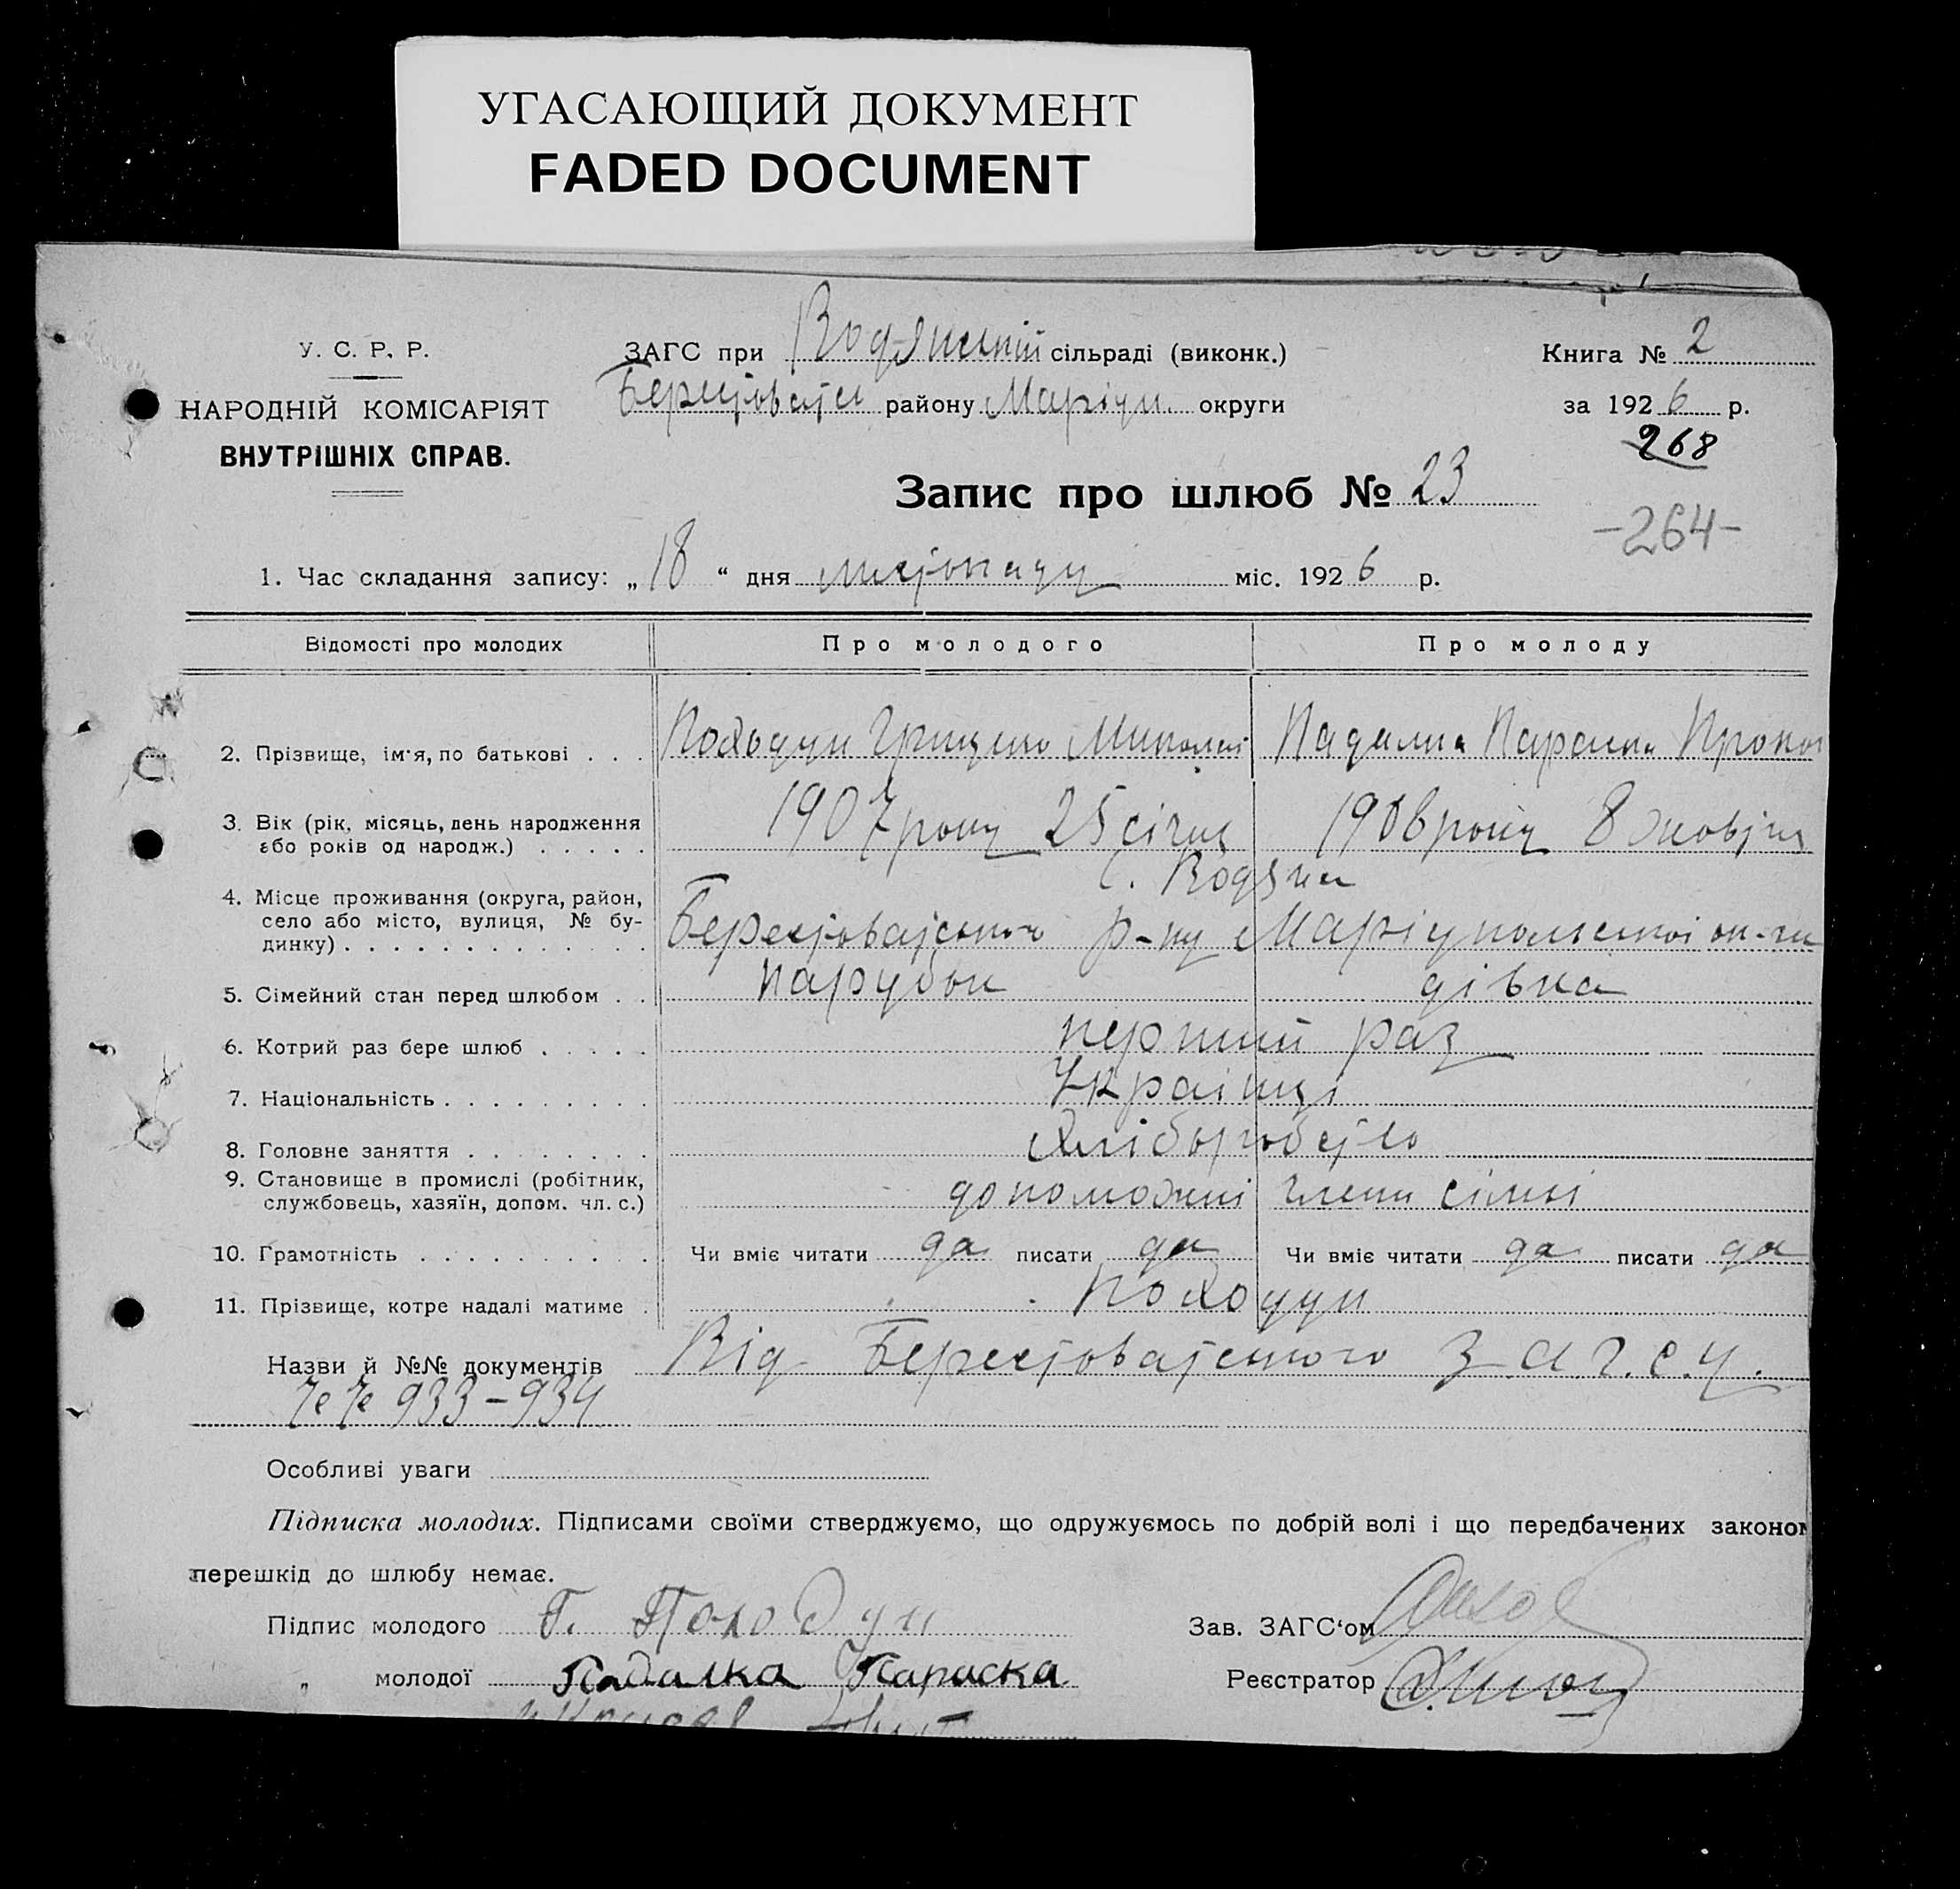 УГАСАЮЩИЙ ДОКУМЕНТ
FADED DOCUMENT
У. С. Р. Р.
НАРОДНІЙ КОМІСАРІЯТ
ВНУТРІШНІХ СПРАВ.
ЗАГС при Водянській сільраді (виконк.)
району Маріуп. округи
Книга № 2
за 1926 р.
268
-264-
Запис про шлюб № 23
1. Час складання запису: „18“ дня листопаду міс. 1926 р.
Відомості про молодих Про молодого Про молоду
2. Прізвище, ім'я, по батькові . . . Походун Грицько Миколай Падалка Параска Прокоп
3. Вік (рік, місяць, день народження
або років од народж.) . . . . . 1907 року 25 січня 1908 року 8 жовтня
с. Водяна
4. Місце проживання (округа, район,
село або місто, вулиця, № бу-
динку) . . . . . . . . . . . . . Берестоватського р-ну Маріупольської ок-ги
5. Сімейний стан перед шлюбом . . парубок дівка
6. Котрий раз бере шлюб . . . . . перший раз
7. Національність . . . . . . . . . Українці
8. Головне заняття . . . . . . . . Хліборобство
9. Становище в промислі (робітник,
службовець, хазяїн, допом. чл. с.) допоможні члени сімьі
10. Грамотність . . . . . . . . . . Чи вміє читати да писати да Чи вміє читати да писати да
11. Прізвище, котре надалі матиме . Походун
Назви й №№ документів Від Берестоватського З.А.Г.С.у.
№№ 933-934
Особливі уваги
Підписка молодих. Підписами своїми стверджуємо, що одружуємось по добрій волі і що передбачених законом
перешкід до шлюбу немає.
Підпис молодого Г. Походун Зав. ЗАГС'ом
„ молодої Падалка Параска Реєстратор